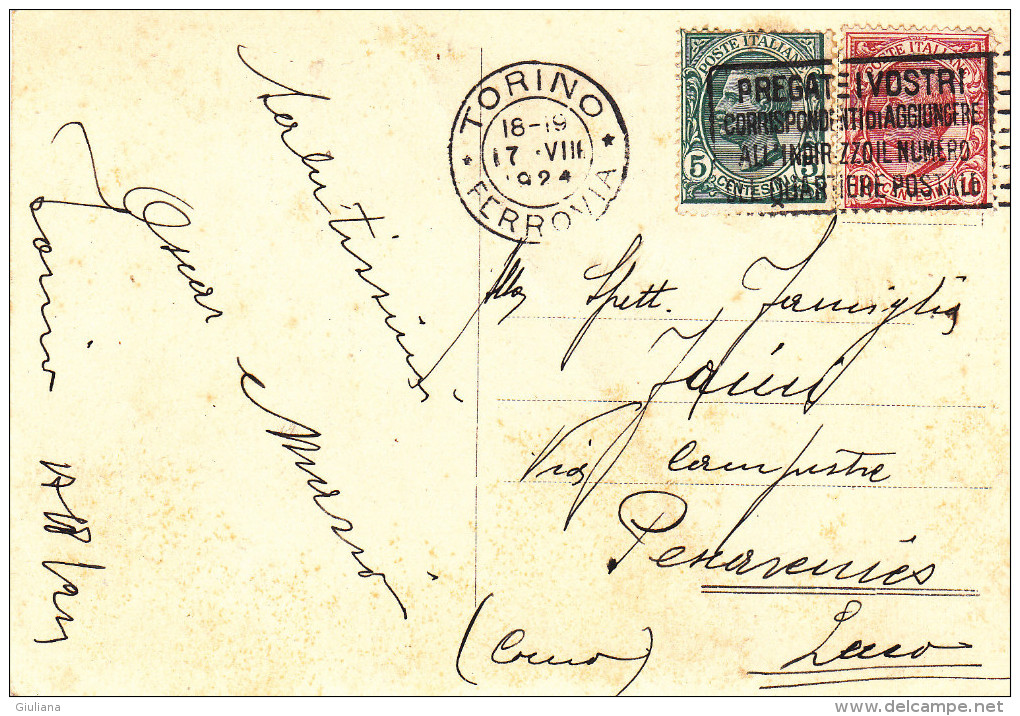 TORINO
18-19
17 · VIII
1924
FERROVIA
POSTE ITALIANE
5
CENTESIMI
5
POSTE ITALIANE
10
CENTESIMI
10
PREGATE I VOSTRI
CORRISPONDENTI DI AGGIUNGERE
ALL'INDIRIZZO IL NUMERO
DEL QUARTIERE POSTALE
Salutissimi
Oscar e
Torino
Alla Spett. Famiglia
Via Campestre
Pescarenico
Lecco
(Como)
Giuliana
www.delcampe.net